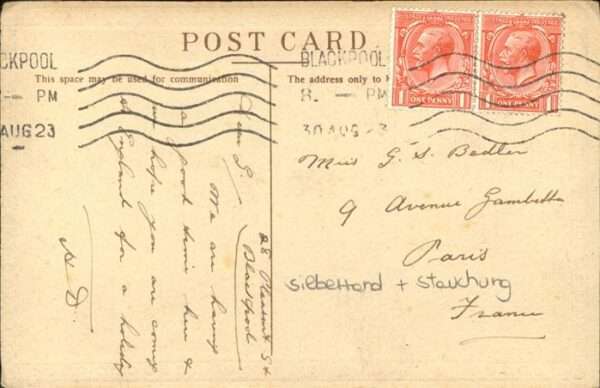 POST CARD
This space may be used for communication
The address only to
BLACKPOOL
8. — PM
30 AUG 23
CKPOOL
— PM
AUG 23
ONE PENNY
1
1
ONE PENNY
1
1
28 Pleasant St
Blackpool
Dear G.
We are having
a good time here &
hope you are coming
to England for a holiday
A. D.
Miss G. S. Bedler
9 Avenue Gambetta
Paris
silberrand + stauchung
France